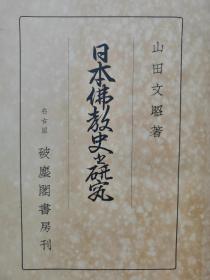 山田文昭著
日本佛教史之研究
名古屋 破塵閣書房刊